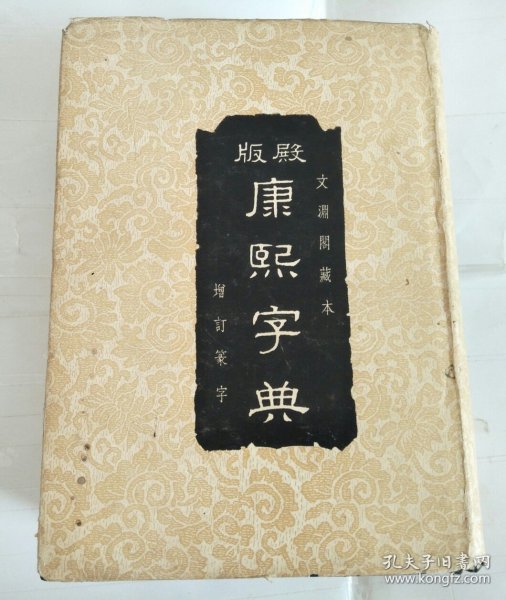 殿版
文淵閣藏本
康熙字典
增訂篆字
孔夫子旧书网
www.kongfz.com